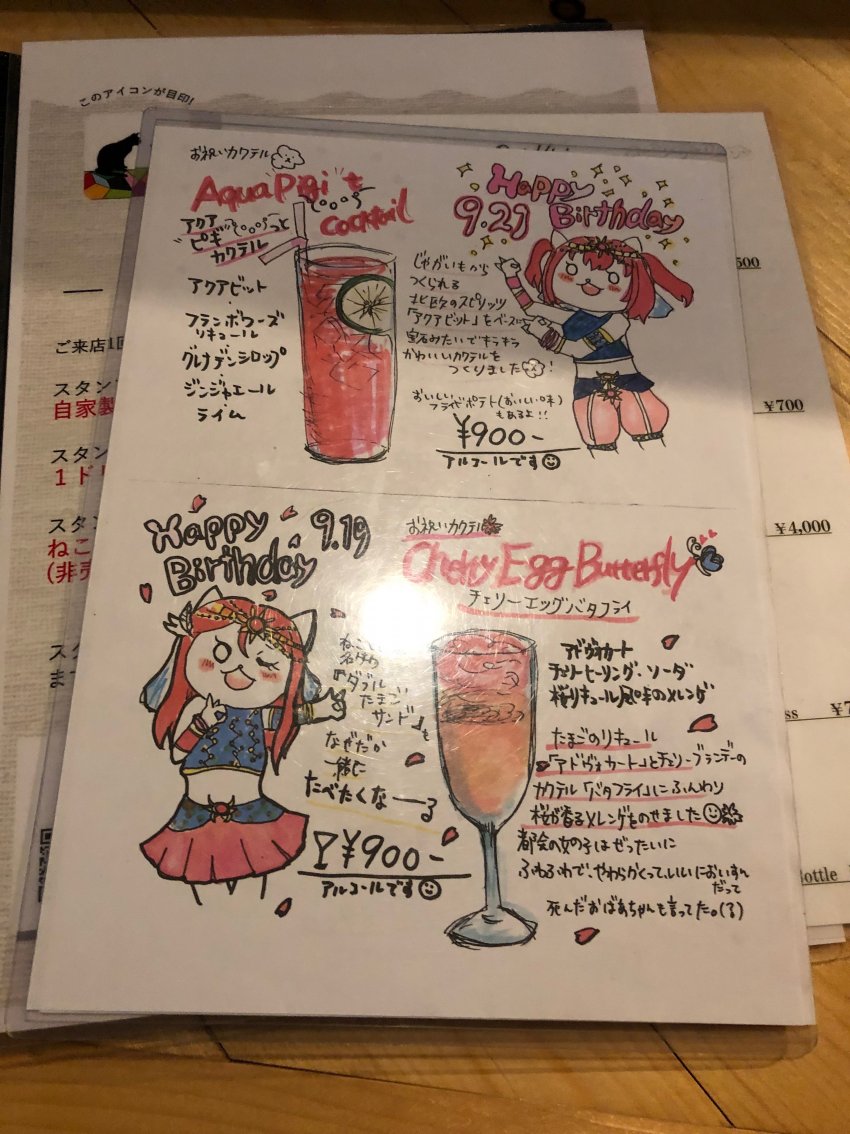 このアイコンが目印!
お祝いカクテル
Aqua Pigi
Cocktail
アクア
ピギ
カクテル
アクアビット
フランボワーズ
リキュール
グレナデンシロップ
ジンジャエール
ライム
Happy
9.21 Birthday
じゃがいもから
つくられる
北欧のスピリッツ
「アクアビット」をベースに
宝石みたいでキラキラ
かわいいカクテルを
つくりました!
おいしい
フライドポテト(おいしい味)
もあるよ!!
¥900-
アルコールです
Happy 9.19
Birthday
お祝いカクテル
Cherry Egg Butterfly
チェリーエッグバタフライ
「ダブル
たまご
サンド」も
なぜだか
一緒に
たべたくなーる
¥900-
アルコールです
アドヴォカート
チェリーヒーリング・ソーダ
桜リキュール風味のメレンゲ
たまごのリキュール
「アドヴォカート」とチェリーブランデーの
カクテル「バタフライ」にふんわり
桜が香るメレンゲものせました
都会の女の子はぜったいに
ふわふわで、やわらかくって、いいにおいすん
だって
死んだおばあちゃんも言ってた。(る)
ご来店1回
スタン
自家製
スタン
1ド
スタン
ねこ
(非売
スタ
ま
500
¥700
¥4,000
ss ¥7
Bottle